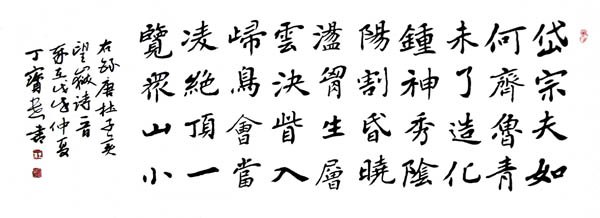 岱宗夫如
何齊魯青
未了造化
鍾神秀陰
陽割昏曉
盪胷生層
雲決眥入
歸鳥會當
凌絕頂一
覽眾山小
右録唐杜子美
望嶽诗一首
歲在戊戌仲夏
丁寶书